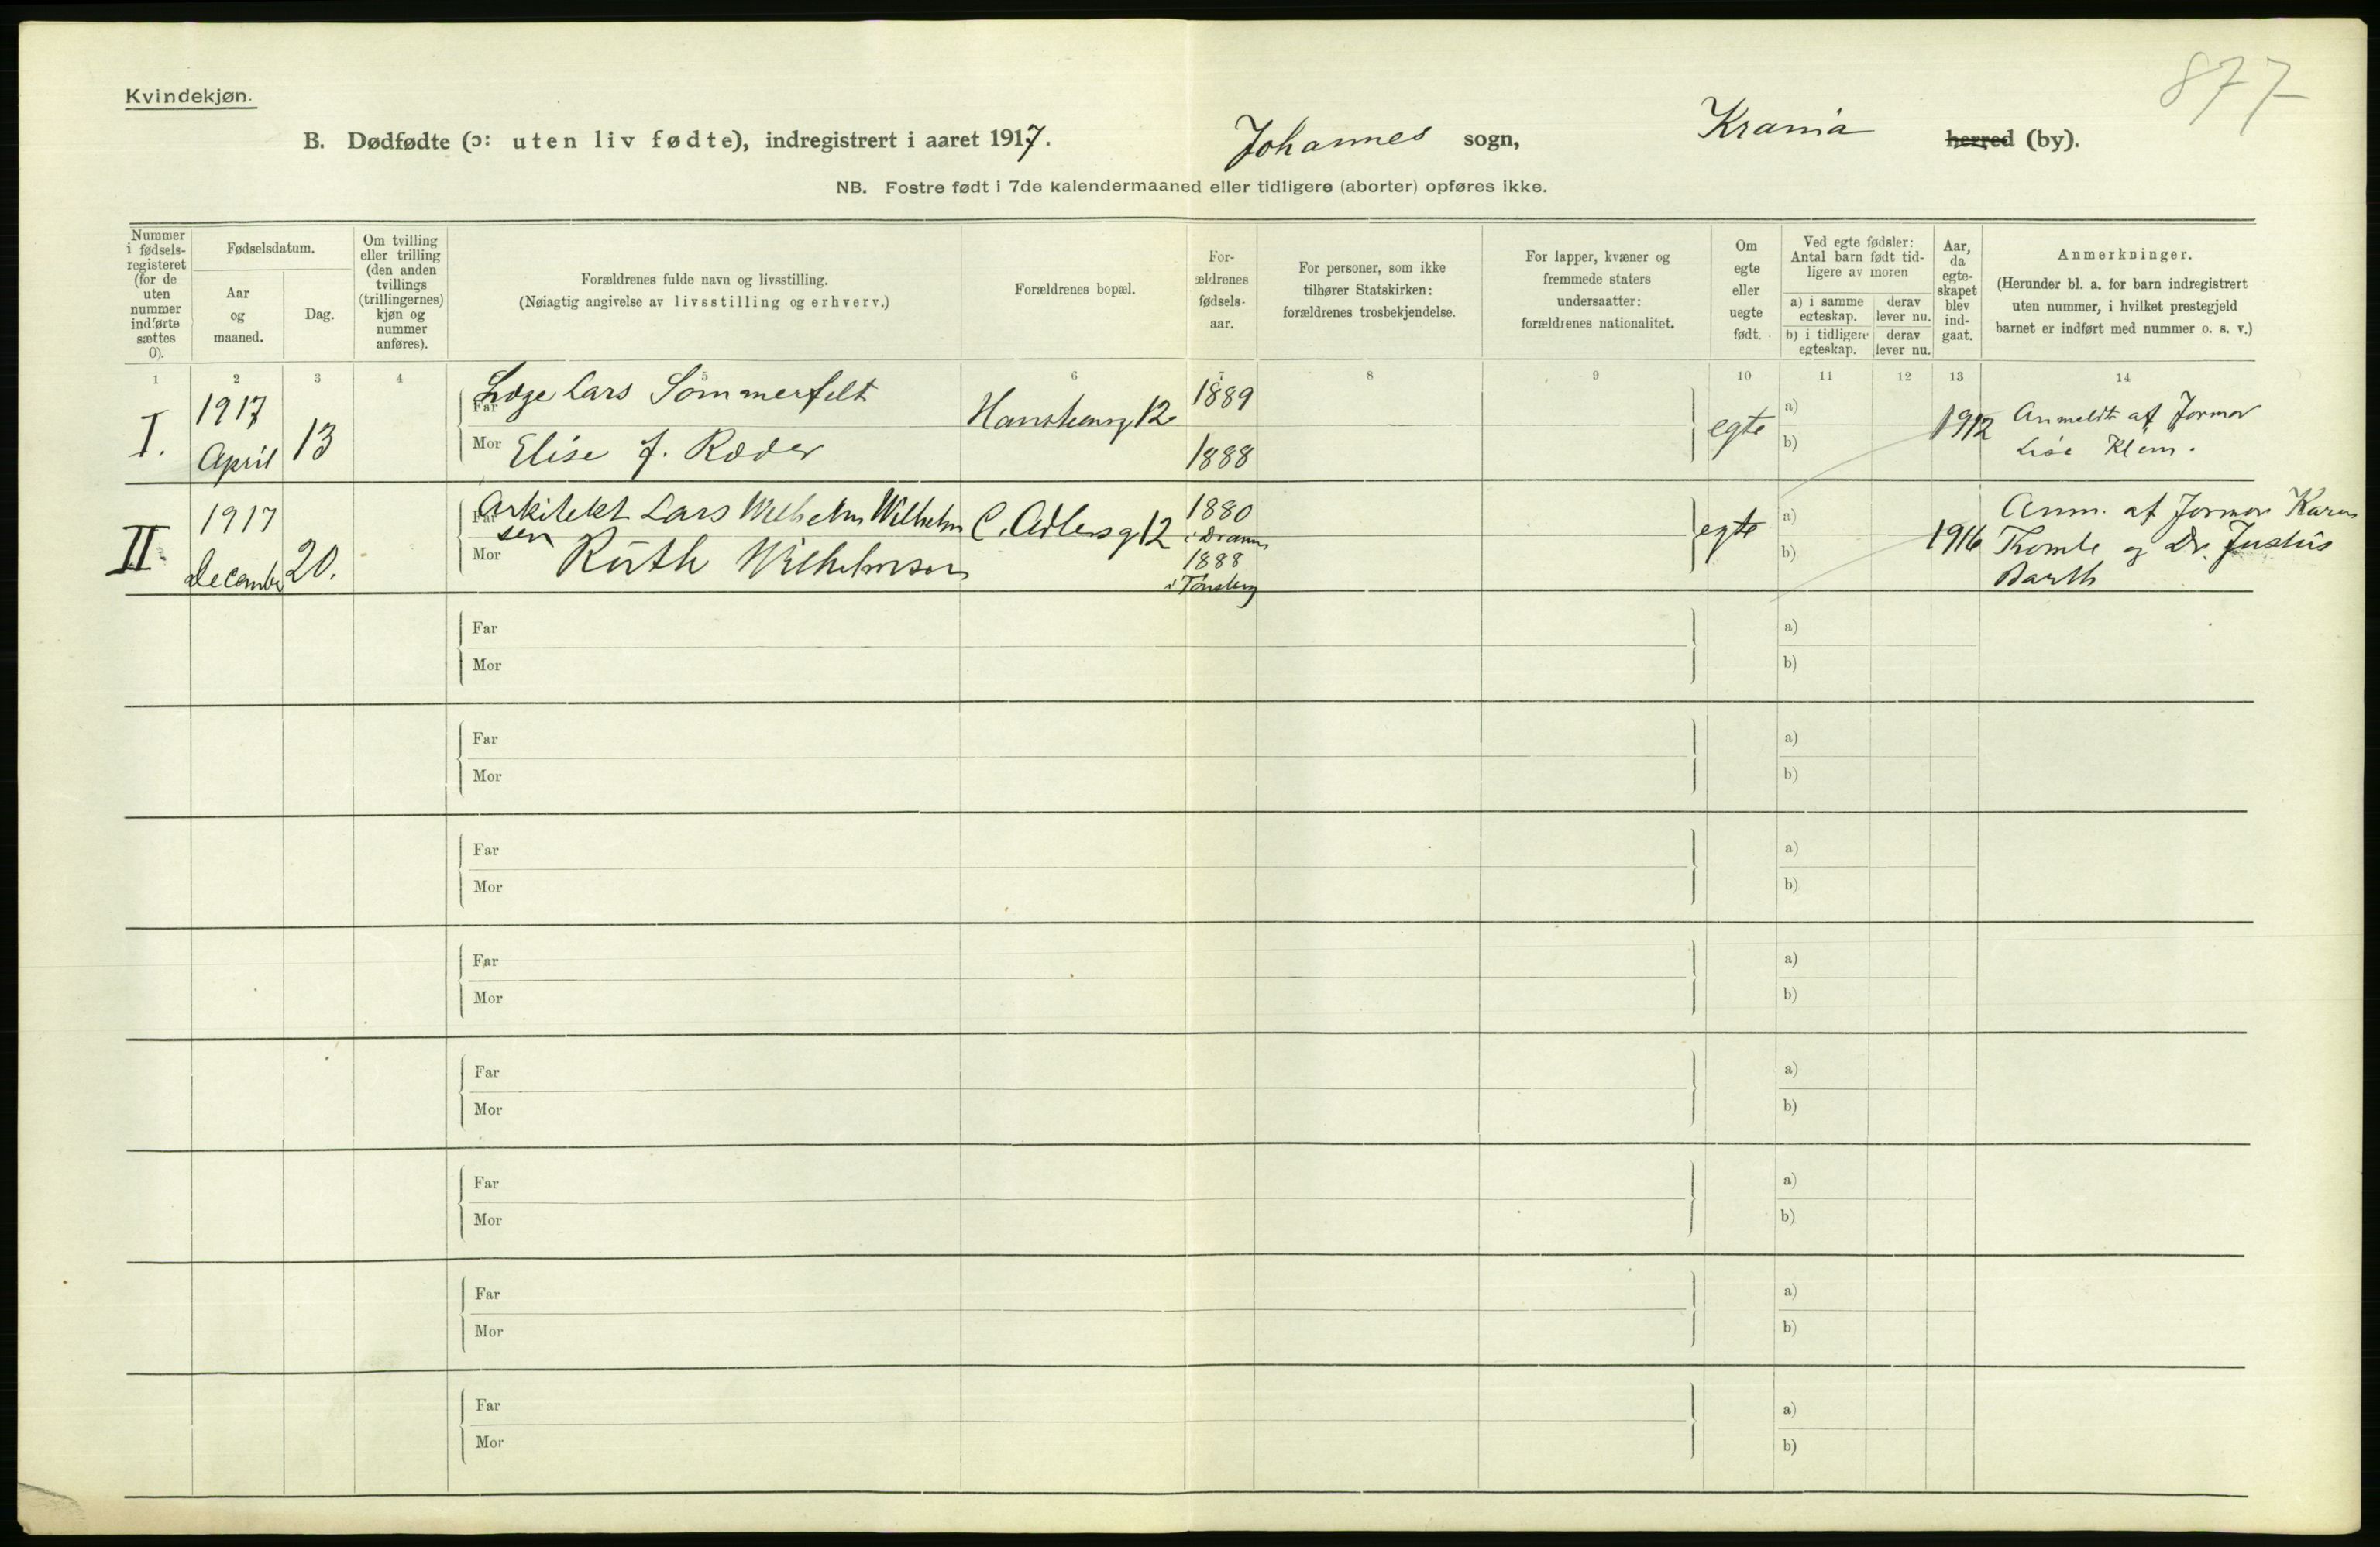 877
Kvindekjøn.
B. Dødfødte (ɔ: uten liv fødte), indregistrert i aaret 1917. Johannes sogn, Krania herred (by).
NB. Fostre født i 7de kalendermaaned eller tidligere (aborter) opføres ikke.
Nummer
i fødsels-
registeret
(for de
uten
nummer
indførte
sættes
0).
Fødselsdatum.
Aar
og
maaned.
Dag.
Om tvilling
eller trilling
(den anden
tvillings
(trillingernes)
kjøn og
nummer
anføres).
Forældrenes fulde navn og livsstilling.
(Nøiagtig angivelse av livsstilling og erhverv.)
Forældrenes bopæl.
For-
ældrenes
fødsels-
aar.
For personer, som ikke
tilhører Statskirken:
forældrenes trosbekjendelse.
For lapper, kvæner og
fremmede staters
undersaatter:
forældrenes nationalitet.
Om
egte
eller
uegte
født.
Ved egte fødsler:
Antal barn født tid-
ligere av moren
a) i samme
egteskap.
derav
lever nu.
b) i tidligere
egteskap.
derav
lever nu.
Aar,
da
egte-
skapet
blev
ind-
gaat.
Anmerkninger.
(Herunder bl. a. for barn indregistrert
uten nummer, i hvilket prestegjeld
barnet er indført med nummer o. s. v.)
1 2 3 4 5 6 7 8 9 10 11 12 13 14
I.
1917
April
13
Far Læge Lars Sommerfelt
Mor Elise f. Røder
12
1889
1888
egte
a)
b)
1912
Anmeldt af Jormor
Lise Klem.
II.
1917
December
20.
Far Arkitekt Lars Wilhelm Wilhelm
sen
Mor Ruth Wilhelmsen
C. Adlersg 12
1880
i Dramm
1888
i Tønsberg
egte
a)
b)
1916
Anm. af Jormor Karen
og Dr. Justus
Barth
Far
Mor
a)
b)
Far
Mor
a)
b)
Far
Mor
a)
b)
Far
Mor
a)
b)
Far
Mor
a)
b)
Far
Mor
a)
b)
Far
Mor
a)
b)
Far
Mor
a)
b)